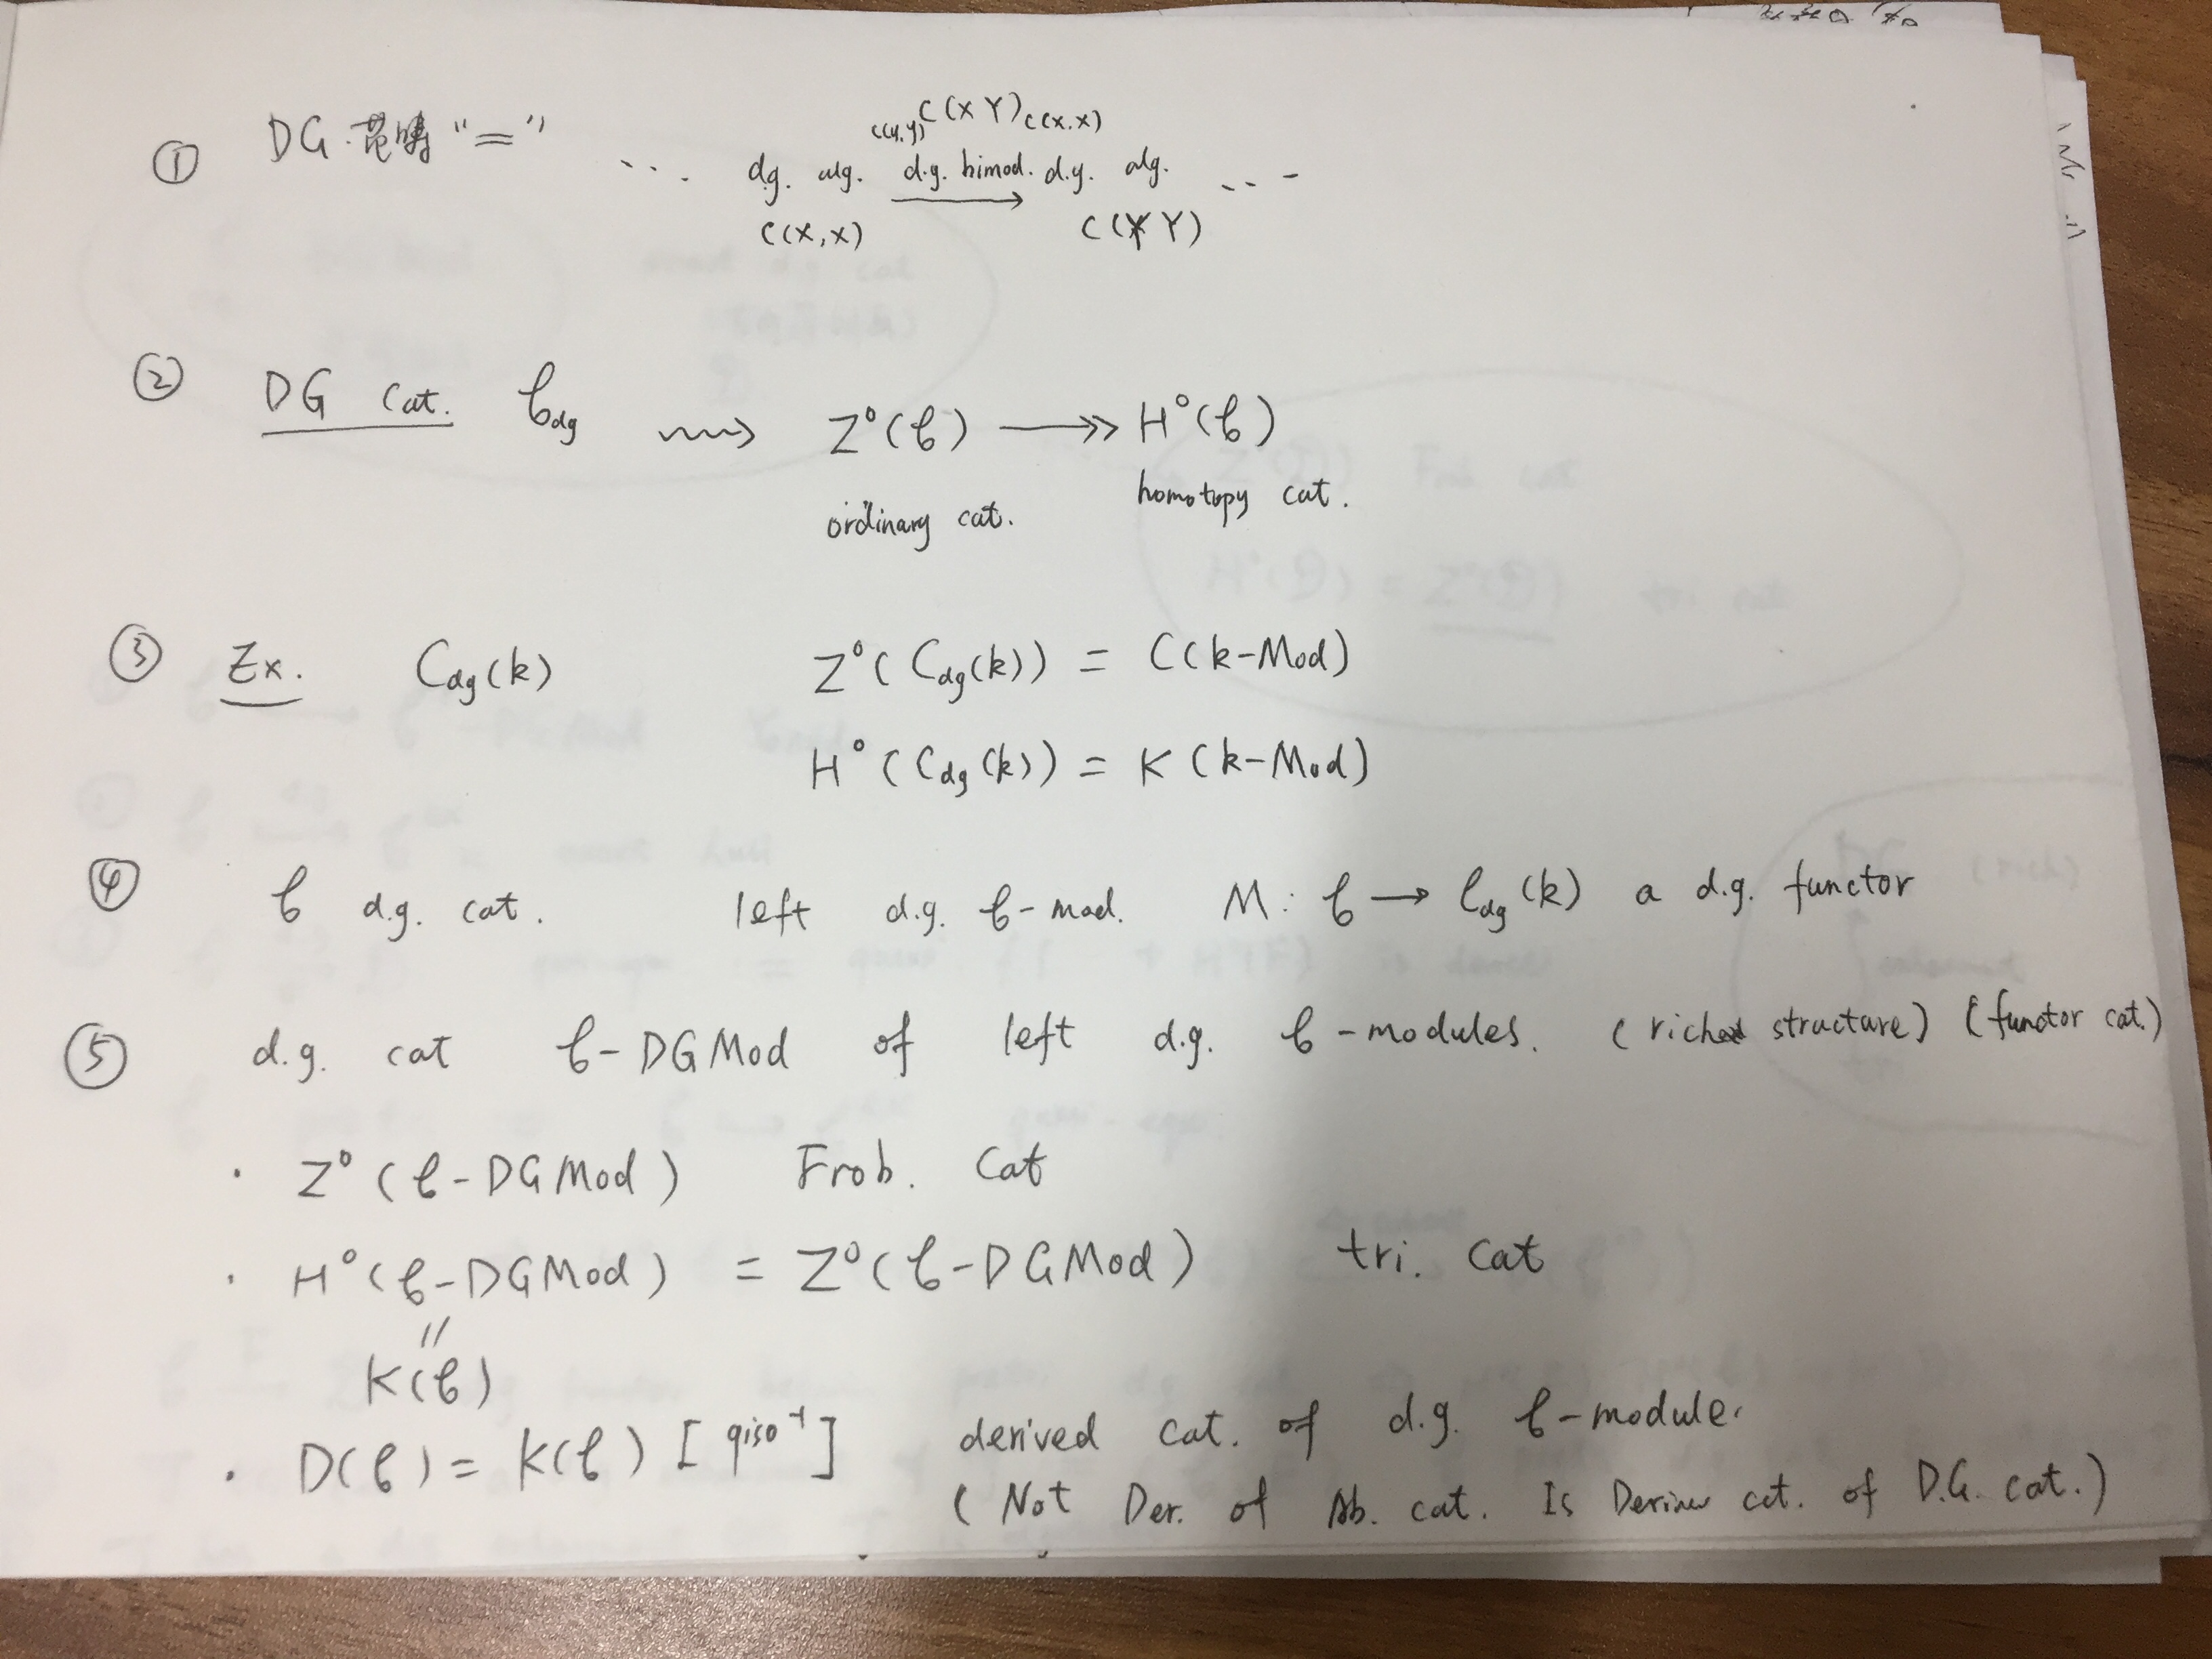 ① DG 范畴 "="  ...  dg. alg. C(X,X)  $\xrightarrow{\text{d.g. bimod. } {}_{C(Y,Y)}C(X Y)_{C(X,X)}}$  d.g. alg. C(Y Y)  ...
② DG cat. 𝒞dg ⇝ Z⁰(𝒞) ↠ H⁰(𝒞)
ordinary cat. homotopy cat.
③ Ex. Cdg(k) Z⁰(Cdg(k)) = C(k-Mod)
H⁰(Cdg(k)) = K(k-Mod)
④ 𝒞 d.g. cat. left d.g. 𝒞-mod. M: 𝒞 → Cdg(k) a d.g. functor
⑤ d.g. cat 𝒞-DGMod of left d.g. 𝒞-modules. (rich structure) (functor cat.)
· Z⁰(𝒞-DGMod) Frob. Cat
· H⁰(𝒞-DGMod) = Z⁰(𝒞-DGMod) tri. Cat
||
K(𝒞)
· D(𝒞) = K(𝒞) [qiso⁻¹] derived cat. of d.g. 𝒞-module.
(Not Der. of Ab. cat. Is Derive cat. of D.G. cat.)